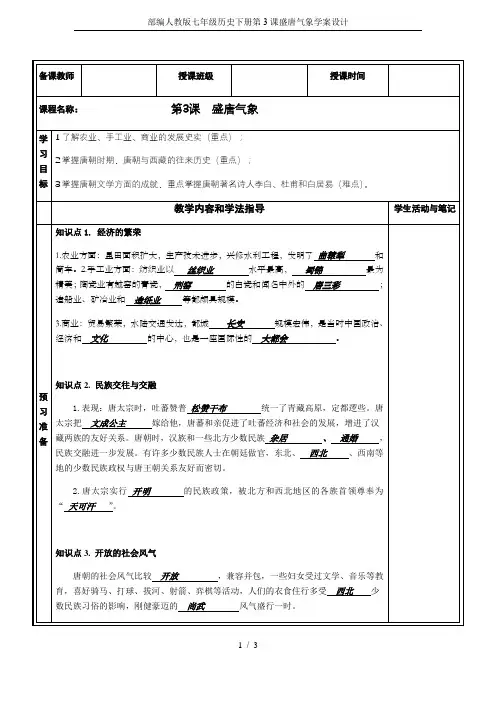 部编人教版七年级历史下册第3课盛唐气象学案设计
备课教师 授课班级 授课时间
课程名称： 第3课 盛唐气象
学习目标
1了解农业、手工业、商业的发展史实（重点）；
2掌握唐朝时期，唐朝与西藏的往来历史（重点）；
3掌握唐朝文学方面的成就，重点掌握唐朝著名诗人李白、杜甫和白居易（难点）。
教学内容和学法指导 学生活动与笔记
预习准备
知识点1. 经济的繁荣
1.农业方面：垦田面积扩大，生产技术进步，兴修水利工程，发明了 曲辕犁 和
筒车。2.手工业方面：纺织业以 丝织业 水平最高， 蜀锦 最为
精美；陶瓷业有越窑的青瓷， 邢窑 的白瓷和闻名中外的 唐三彩 ；
造船业、矿冶业和 造纸业 等都颇具规模。
3.商业：贸易繁荣，水陆交通发达，都城 长安 规模宏伟，是当时中国政治、
经济和 文化 的中心，也是一座国际性的 大都会 。
知识点2. 民族交往与交融
1.表现：唐太宗时，吐蕃赞普 松赞干布 统一了青藏高原，定都逻些。唐
太宗把 文成公主 嫁给他，唐蕃和亲促进了吐蕃经济和社会的发展，增进了汉
藏两族的友好关系。唐朝时，汉族和一些北方少数民族 杂居 、 通婚 ，
民族交融进一步发展。有许多少数民族人士在朝廷做官，东北、 西北 、西南等
地的少数民族政权与唐王朝关系友好而密切。
2.唐太宗实行 开明 的民族政策，被北方和西北地区的各族首领尊奉为
“ 天可汗 ”。
知识点3. 开放的社会风气
唐朝的社会风气比较 开放 ，兼容并包，一些妇女受过文学、音乐等教
育，喜好骑马、打球、拔河、射箭、弈棋等活动，人们的衣食住行多受 西北 少
数民族习俗的影响，刚健豪迈的 尚武 风气盛行一时。
1 / 3